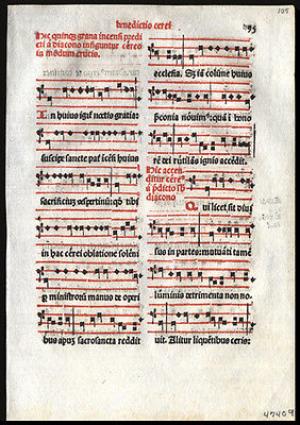 105
benedictio cerei
95
Hic quinque grana incensi predi
cti a diacono infiguntur cereo
in modum crucis.
In huius igit noctis gratia:
suscipe sancte pat incēsi huius
sacrificium vespertinū: qd tibi
in hac cerei oblatione solēni
p ministroru manus de operi
bus apuʒ sacrosancta reddit
ecclesia. Sʒ iā colūne huius
pconia novim9: quā i hono
rē dei rutilās ignis accēdit.
Hic accen
ditur cere9
a pdicto sb
diacono
Qui licet sit divi
sus in partes: mutuati tamē
luminis detrimenta non no-
vit. Alitur liquētibus ceris:
47409